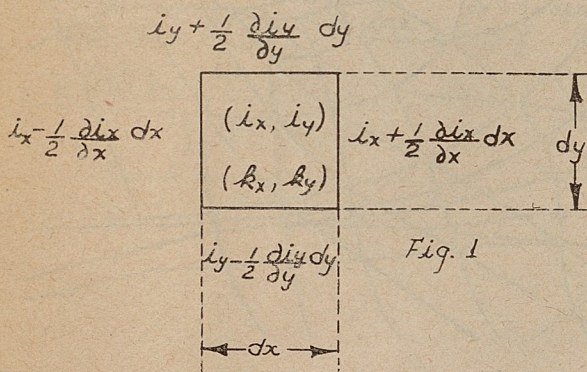 iy + 1/2 ∂iy/∂y dy
ix - 1/2 ∂ix/∂x dx
(ix, iy)
(kx, ky)
ix + 1/2 ∂ix/∂x dx
dy
iy - 1/2 ∂iy/∂y dy
Fig. 1
dx